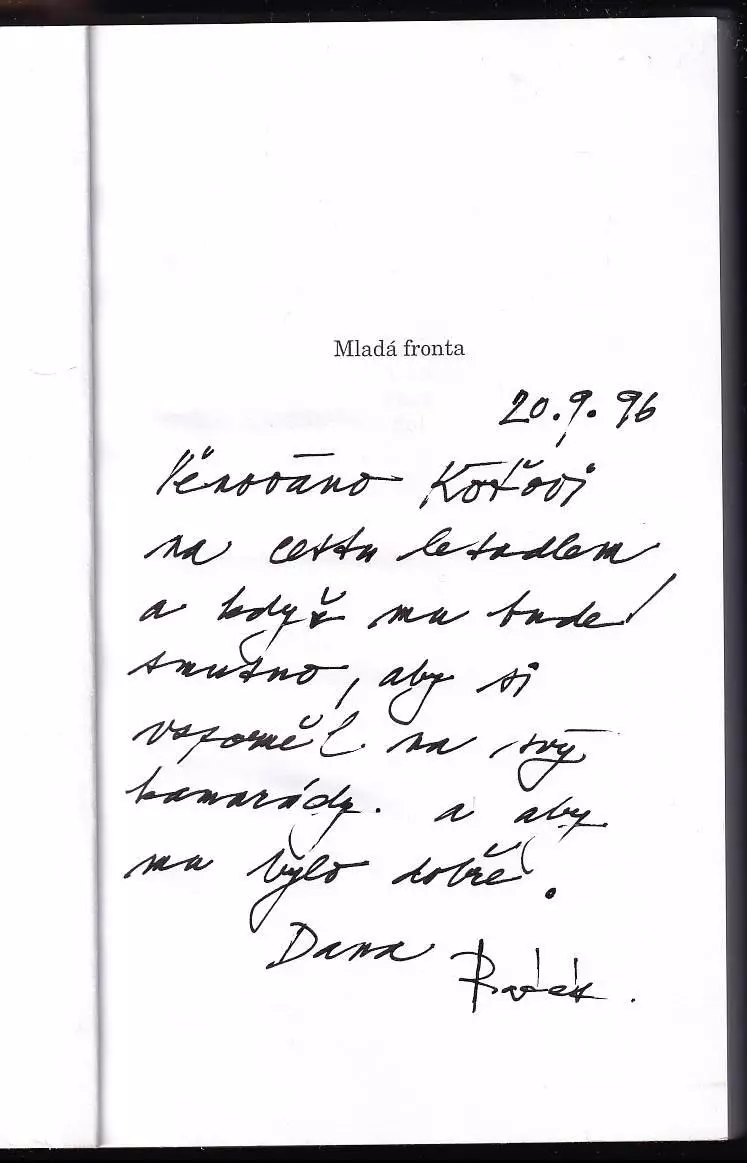 Mladá fronta
20.9.96
Věnováno Koťovi
na cestu letadlem
a když mu bude
smutno, aby si
vzpoměl na svý
kamarády. a aby
mu bylo dobře.
Dana